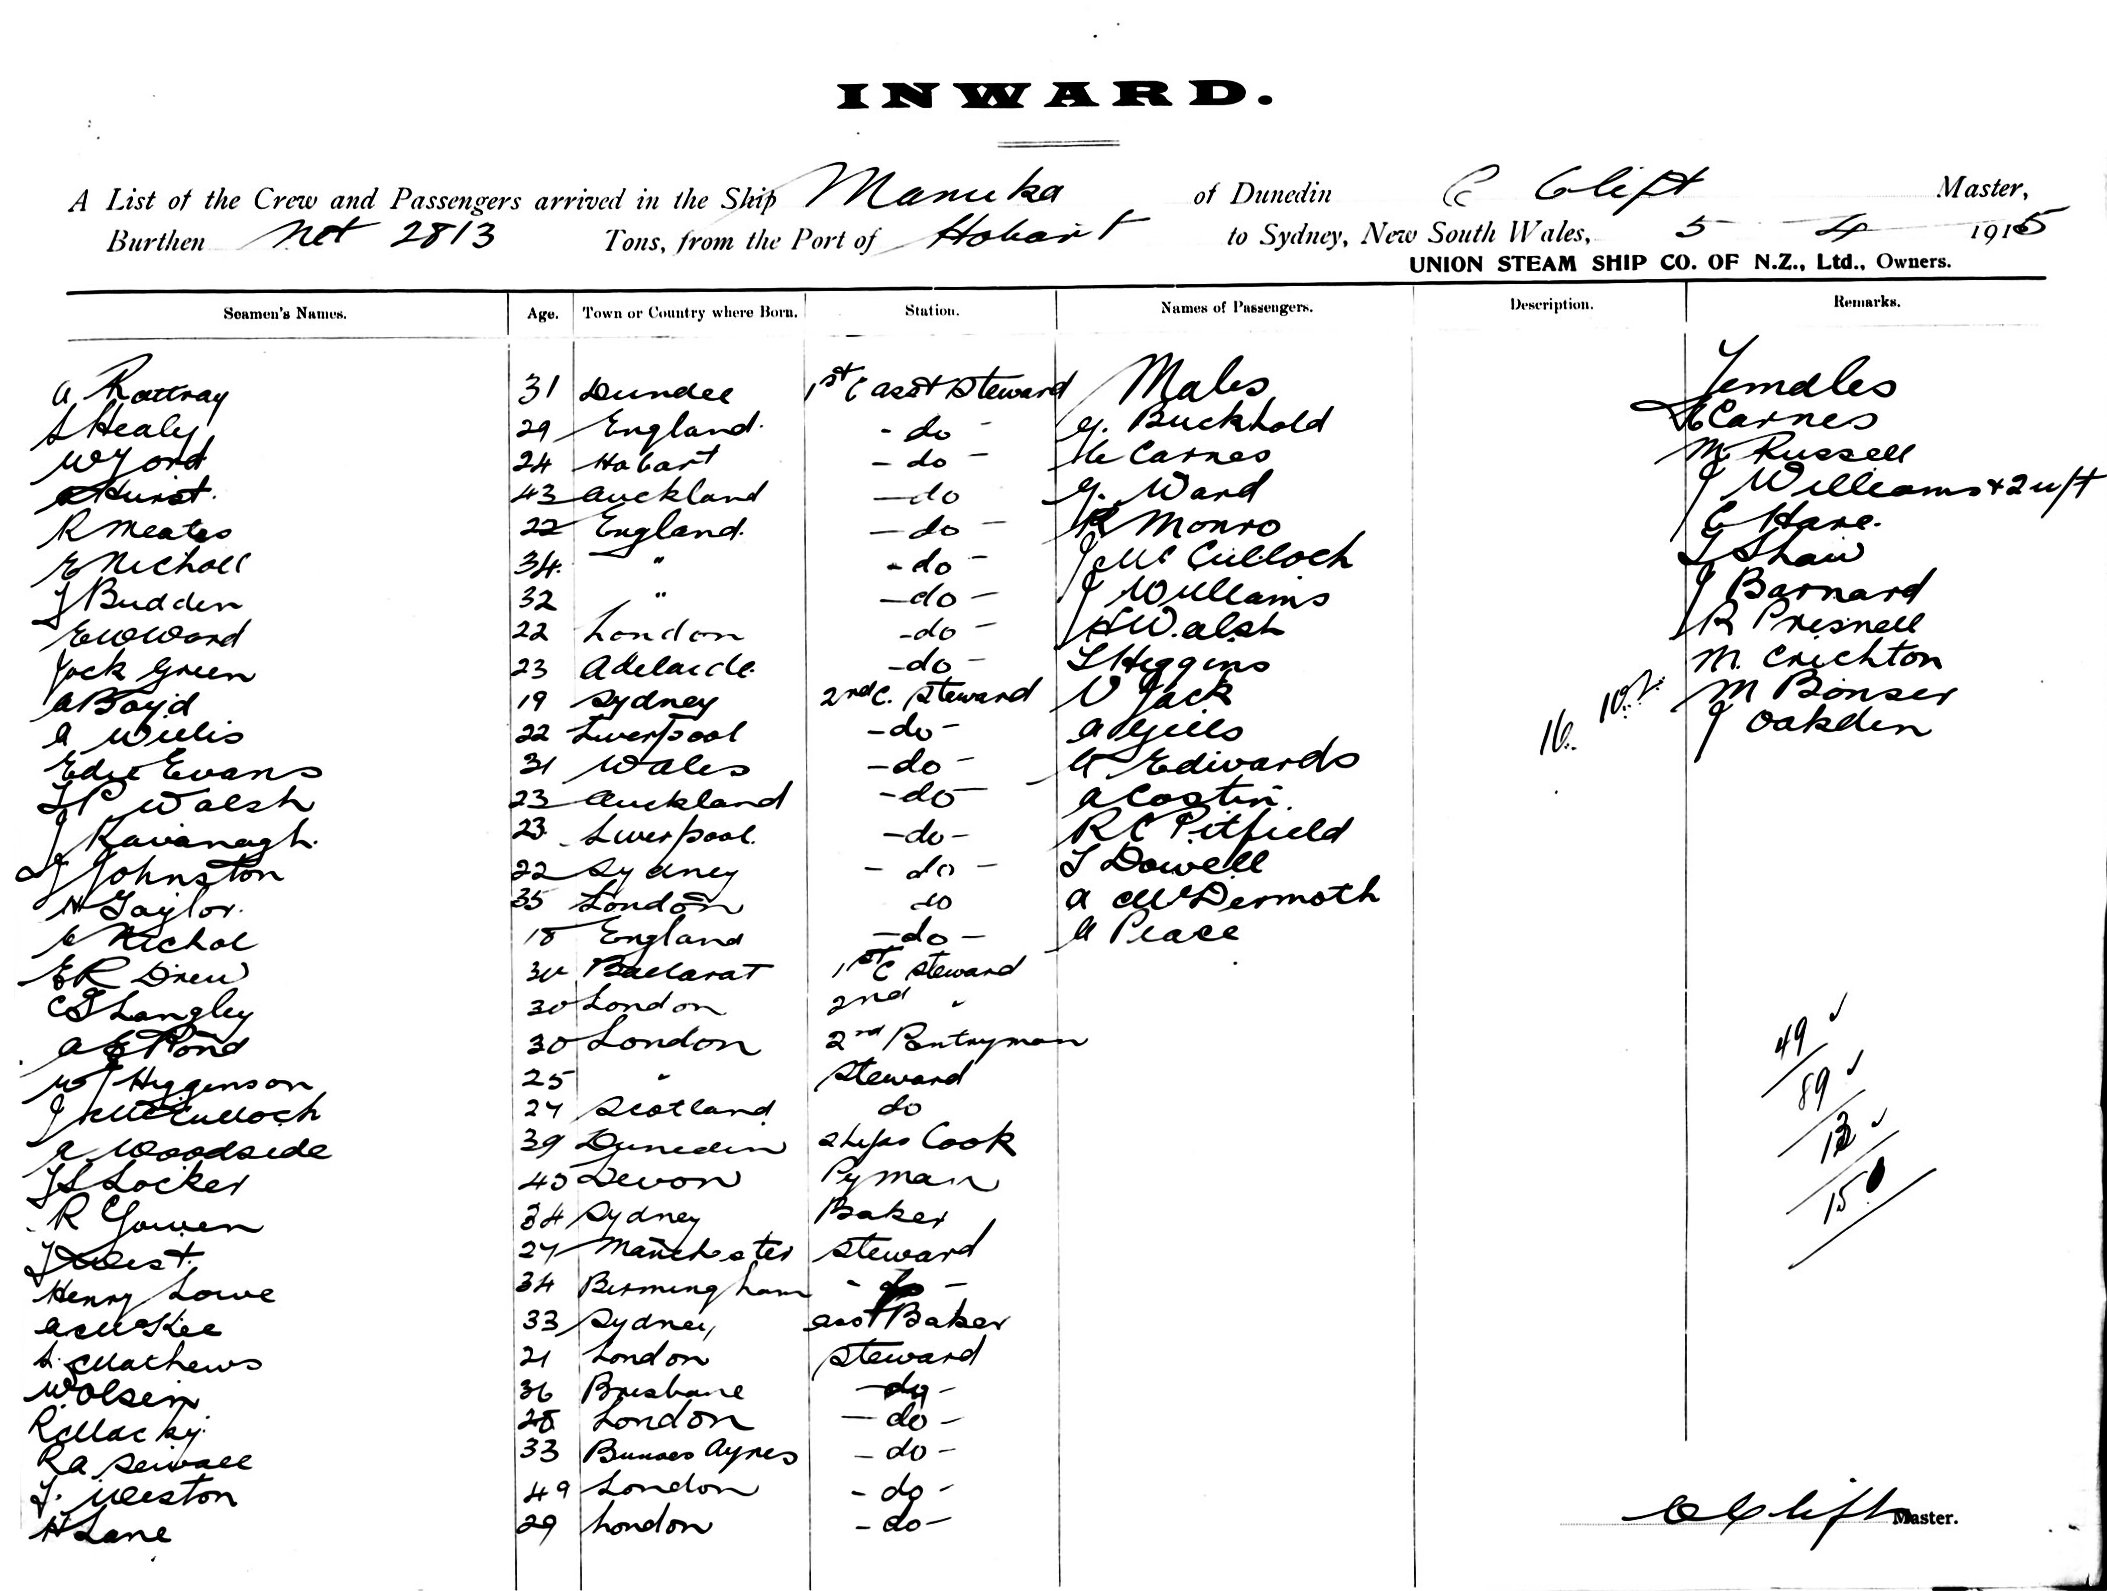 INWARD.
A List of the Crew and Passengers arrived in the Ship Manuka of Dunedin C Clift Master,
Burthen Net 2813 Tons, from the Port of Hobart to Sydney, New South Wales, 5 - 4 1915
UNION STEAM SHIP CO. OF N.Z., Ltd., Owners.
Seamen's Names. Age. Town or Country where Born. Station. Names of Passengers. Description. Remarks.
A Rattray 31 Dundee 1st C asst Steward Males Females
S Healy 29 England - do - G. Buckhold E Carnes
W Ford 24 Hobart - do - C Carnes M Russell
Hurst 43 Auckland - do G. Ward J Williams + 2 inft
R Meates 22 England - do - R Monro C Hare
E Nicholl 34 " - do - J McCulloch L Shaw
J Budden 32 " - do - J Williams J Barnard
E W Ward 22 London - do - H Walsh R Presnell
Jack Green 23 Adelaide - do - L Higgins M. Crichton
A Boyd 19 Sydney 2nd C. Steward V Jack M Bonser
A Willis 22 Liverpool - do - A Gills J Oakden
16.
Edie Evans 31 Wales - do - A Edwards
T P Walsh 23 Auckland - do - A Costin
J Kavanagh. 23 Liverpool. - do - R C Pitfield
J Johnston 22 Sydney - do - T Dowell
H Taylor. 35 London do A McDermoth
E Nichol 18 England - do - A Peace
E R Drew 30 Ballarat 1st C Steward
C S Langley 30 London 2nd "
A E Pond 30 London 2nd Pantryman
49
W J Higginson 25 " Steward
89
J McCulloch 27 Scotland do
12
A Woodside 39 Dunedin Ships Cook
T S Locker 45 Devon Pyman
150
R Gowen 34 Sydney Baker
J West 27 Manchester Steward
Henry Lowe 34 Birmingham - do -
A McKee 33 Sydney asst Baker
S. Mathews 21 London Steward
W Olsen 36 Brisbane - do -
R Macky 28 London - do -
R A Sewall 33 Buenos Ayres - do -
J. Weston 49 London - do -
H Lane 29 London - do -
C Clift Master.